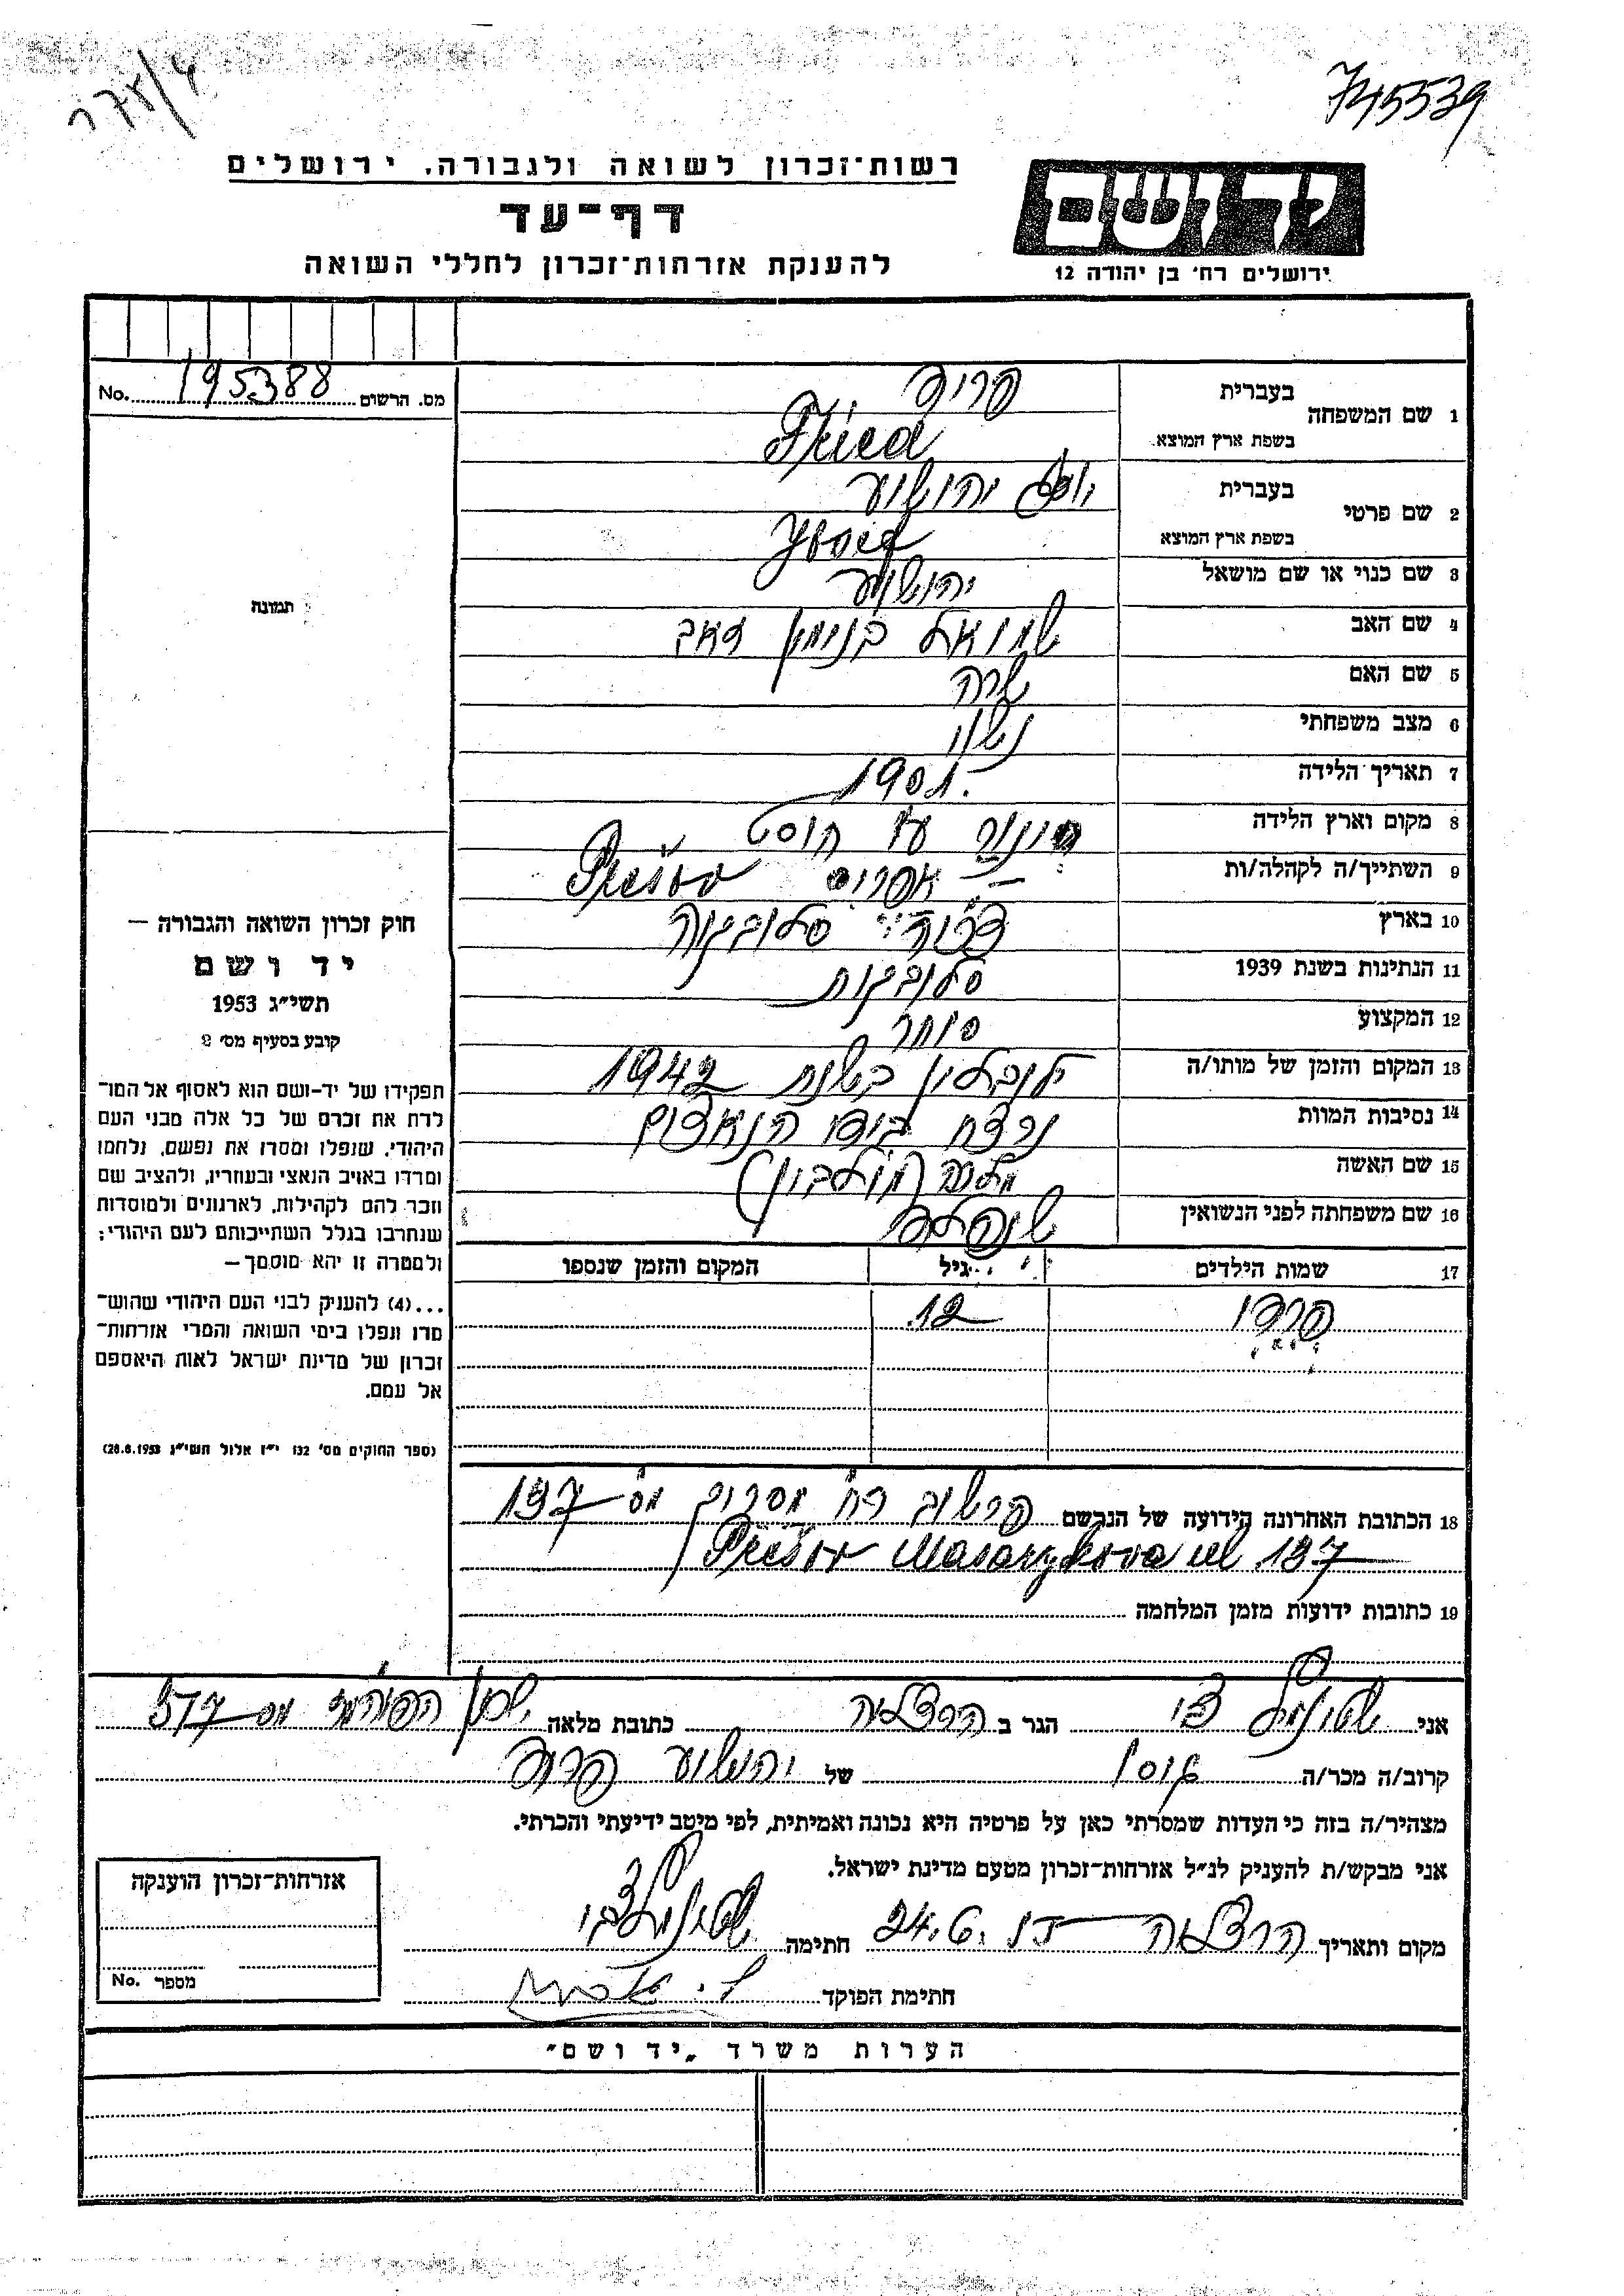 745539
רשות־זכרון לשואה ולגבורה, ירושלים
דף־עד
להענקת אזרחות־זכרון לחללי השואה
יד ושם
ירושלים רח' בן יהודה 12
מס. הרשום 195388 No.
1 שם המשפחה בעברית פריד
בשפת ארץ המוצא Fried
2 שם פרטי בעברית יוסף יהושוע
בשפת ארץ המוצא
3 שם כנוי או שם מושאל יהושוע
4 שם האב שמואל בנימין זאב
5 שם האם שרה
6 מצב משפחתי נשוי
7 תאריך הלידה 1901.
8 מקום וארץ הלידה
9 השתייך/ה לקהלה/ות Prešov
10 בארץ סלובקיה
11 הנתינות בשנת 1939 סלובקית
12 המקצוע סוחר
13 המקום והזמן של מותו/ה לובלין בשנת 1942
14 נסיבות המוות נרצח בידי הנאצים
15 שם האשה
16 שם משפחתה לפני הנשואין
17 שמות הילדים גיל המקום והזמן שנספו
12
תמונה
חוק זכרון השואה והגבורה —
יד ושם
תשי״ג 1953
קובע בסעיף מס' 2
תפקידו של יד-ושם הוא לאסוף אל המו־
לדת את זכרם של כל אלה מבני העם
היהודי, שנפלו ומסרו את נפשם, נלחמו
ומרדו באויב הנאצי ובעוזריו, ולהציב שם
וזכר להם לקהילות, לארגונים ולמוסדות
שנחרבו בגלל השתייכותם לעם היהודי;
ולמטרה זו יהא מוסמך —
...(4) להעניק לבני העם היהודי שהוש־
מדו ונפלו בימי השואה והמרי אזרחות־
זכרון של מדינת ישראל לאות היאספם
אל עמם.
(ספר החוקים מס' 132 י״ז אלול תשי״ג 28.8.1953)
18 הכתובת האחרונה הידועה של הנרשם פרשוב רח' מסריק מס 137
Prešov Masarykova ul 137
19 כתובות ידועות מזמן המלחמה
אני צבי הגר ב הרצליה כתובת מלאה שכון מס 517
קרוב/ה מכר/ה גיסו של יהושוע פריד
מצהיר/ה בזה כי העדות שמסרתי כאן על פרטיה היא נכונה ואמיתית, לפי מיטב ידיעתי והכרתי.
אני מבקש/ת להעניק לנ״ל אזרחות־זכרון מטעם מדינת ישראל.
מקום ותאריך הרצליה 24.6. חתימה
חתימת הפוקד
אזרחות־זכרון הוענקה
מספר No.
הערות משרד „יד ושם״